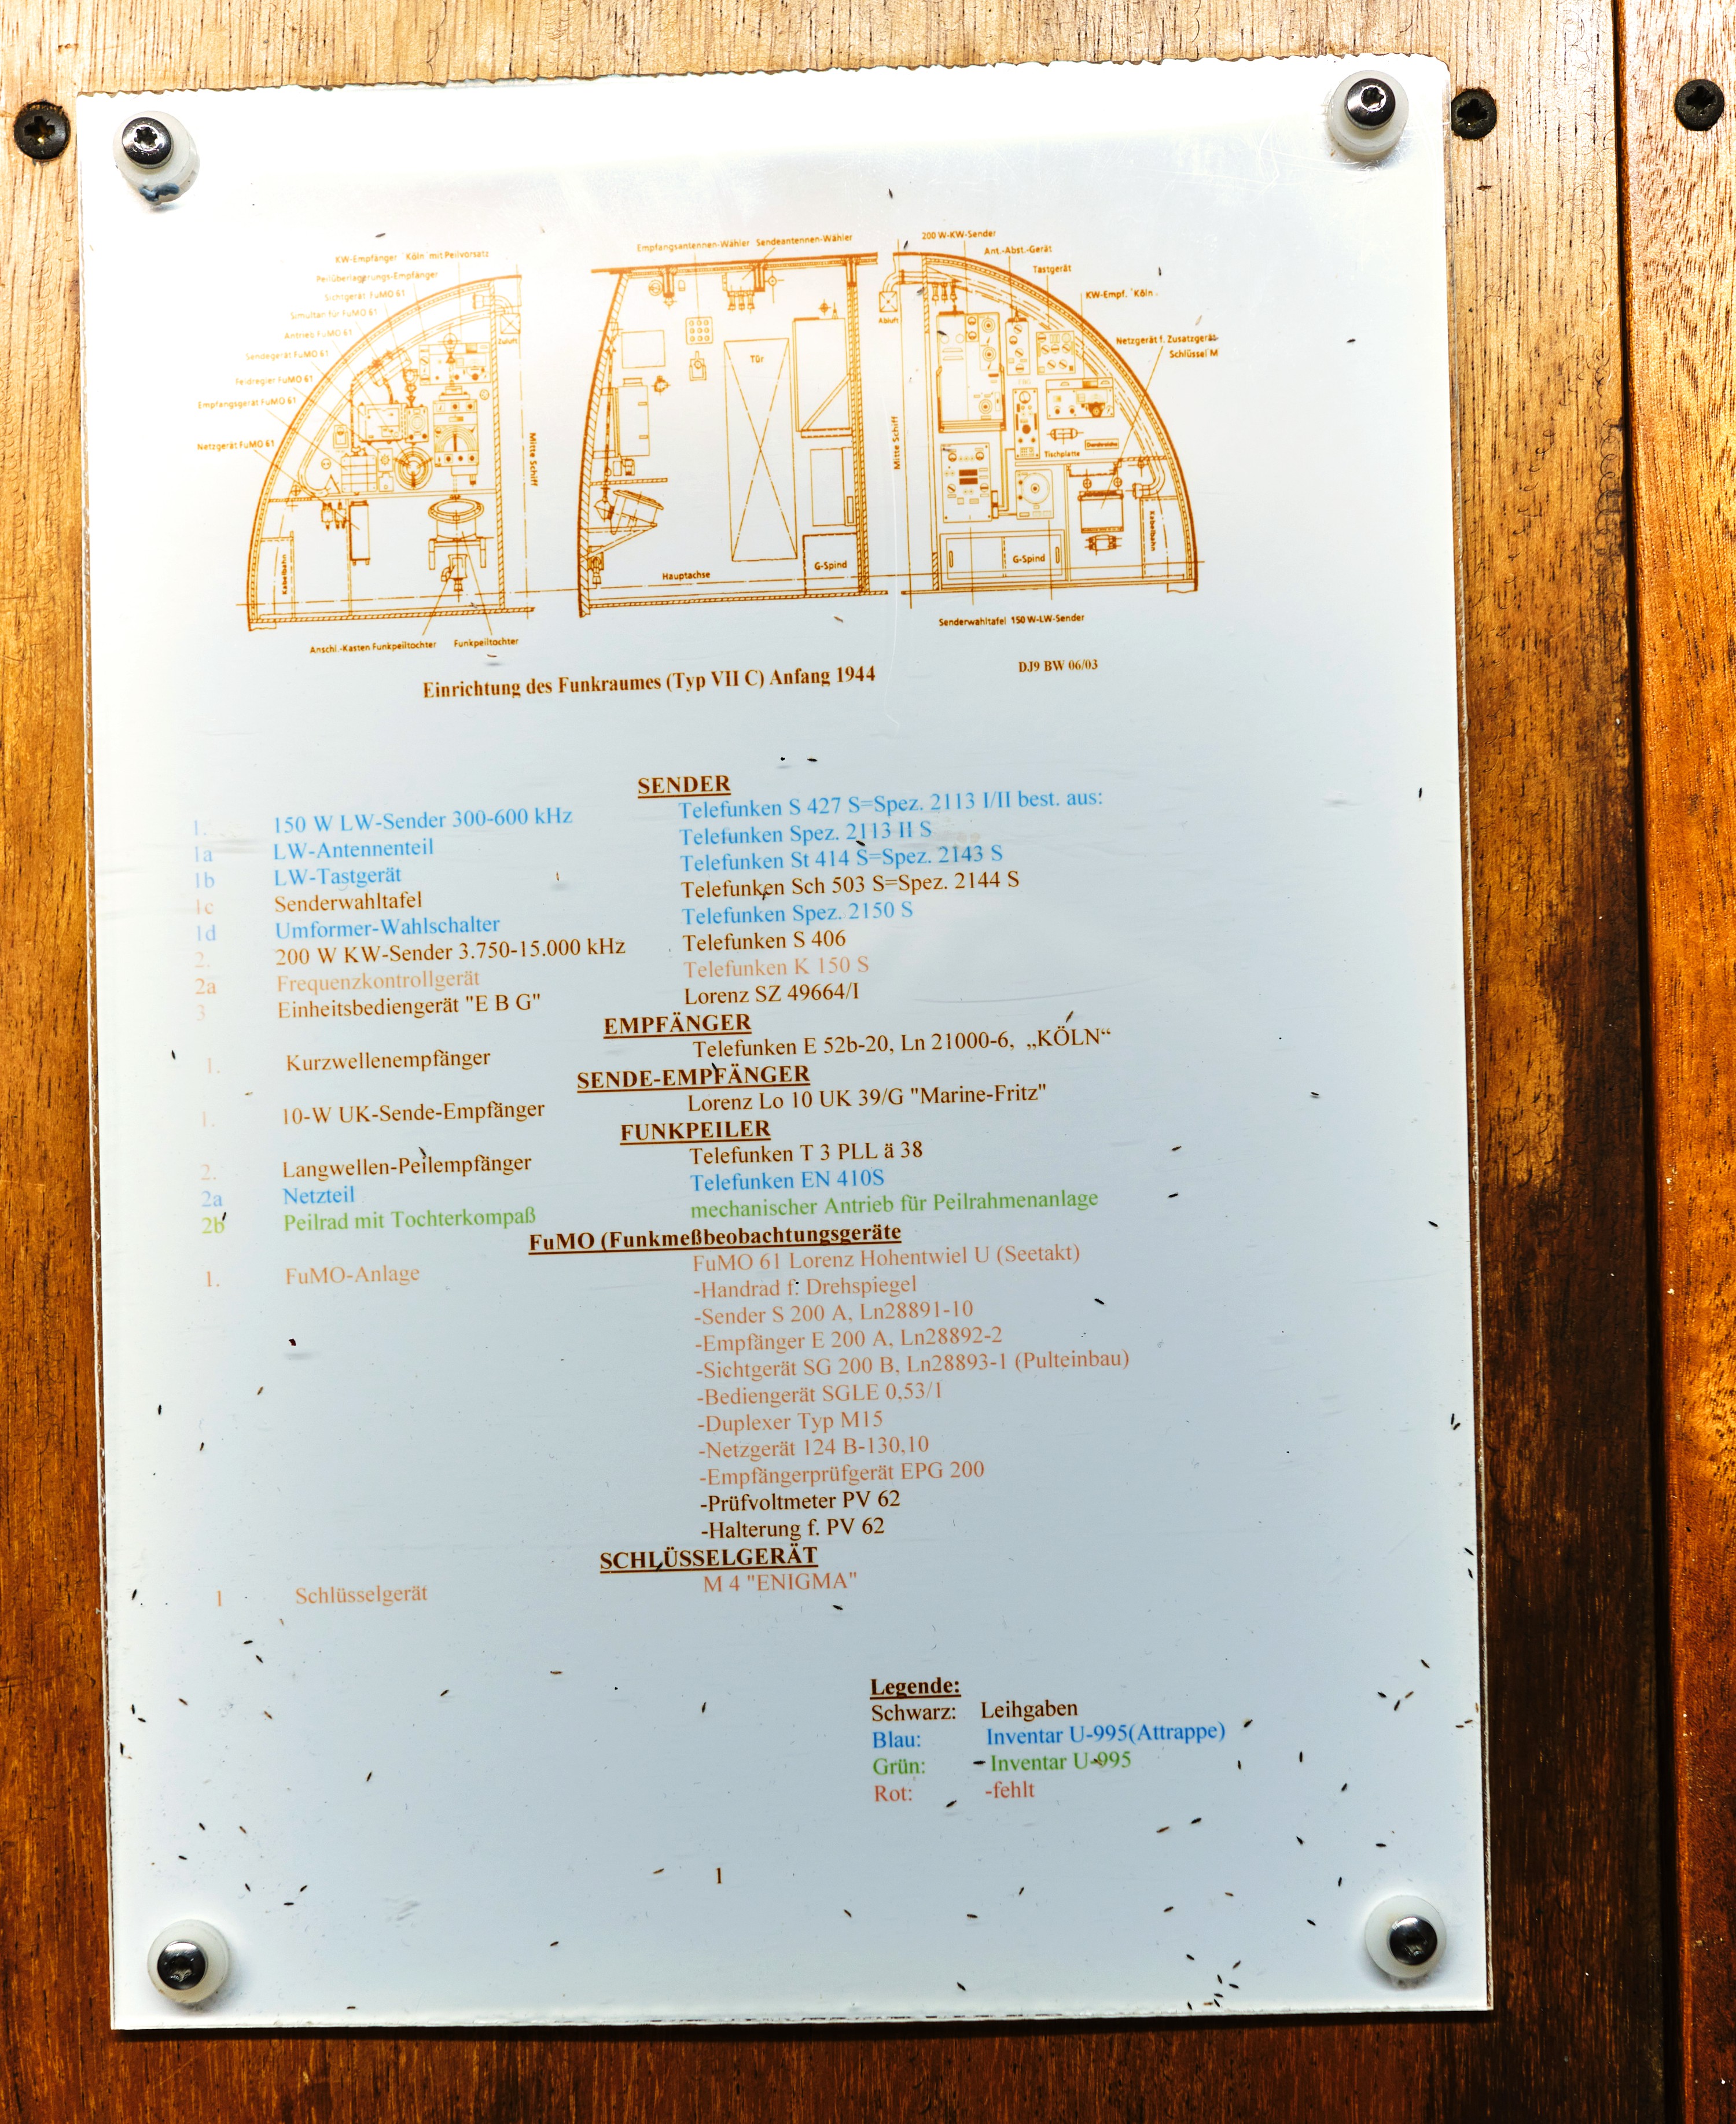 KW-Empfänger 'Köln' mit Peilvorsatz
Peilüberlagerungs-Empfänger
Sichtgerät FuMO 61
Simultan für FuMO 61
Antrieb FuMO 61
Sendegerät FuMO 61
Feldregler FuMO 61
Empfangsgerät FuMO 61
Netzgerät FuMO 61
Zuluft
Mitte Schiff
Kabelbahn
Anschl.-Kasten Funkpeiltochter
Funkpeiltochter
Empfangsantennen-Wähler
Sendeantennen-Wähler
Tür
G-Spind
Hauptachse
200 W-KW-Sender
Ant.-Abst.-Gerät
Tastgerät
KW-Empf. 'Köln'
Netzgerät f. Zusatzgerät
Schlüssel M
Abluft
Mitte Schiff
Tischplatte
G-Spind
Kabelbahn
Senderwahltafel
150 W-LW-Sender
Einrichtung des Funkraumes (Typ VII C) Anfang 1944
DJ9 BW 06/03
SENDER
1. 150 W LW-Sender 300-600 kHz Telefunken S 427 S=Spez. 2113 I/II best. aus:
1a LW-Antennenteil Telefunken Spez. 2113 II S
1b LW-Tastgerät Telefunken St 414 S=Spez. 2143 S
1c Senderwahltafel Telefunken Sch 503 S=Spez. 2144 S
1d Umformer-Wahlschalter Telefunken Spez. 2150 S
2. 200 W KW-Sender 3.750-15.000 kHz Telefunken S 406
2a Frequenzkontrollgerät Telefunken K 150 S
3 Einheitsbediengerät "E B G" Lorenz SZ 49664/I
EMPFÄNGER
1. Kurzwellenempfänger Telefunken E 52b-20, Ln 21000-6, „KÖLN“
SENDE-EMPFÄNGER
1. 10-W UK-Sende-Empfänger Lorenz Lo 10 UK 39/G "Marine-Fritz"
FUNKPEILER
2. Langwellen-Peilempfänger Telefunken T 3 PLL ä 38
2a Netzteil Telefunken EN 410S
2b Peilrad mit Tochterkompaß mechanischer Antrieb für Peilrahmenanlage
FuMO (Funkmeßbeobachtungsgeräte
1. FuMO-Anlage FuMO 61 Lorenz Hohentwiel U (Seetakt)
-Handrad f. Drehspiegel
-Sender S 200 A, Ln28891-10
-Empfänger E 200 A, Ln28892-2
-Sichtgerät SG 200 B, Ln28893-1 (Pulteinbau)
-Bediengerät SGLE 0,53/1
-Duplexer Typ M15
-Netzgerät 124 B-130,10
-Empfängerprüfgerät EPG 200
-Prüfvoltmeter PV 62
-Halterung f. PV 62
SCHLÜSSELGERÄT
1 Schlüsselgerät M 4 "ENIGMA"
Legende:
Schwarz: Leihgaben
Blau: Inventar U-995(Attrappe)
Grün: -Inventar U-995
Rot: -fehlt
1